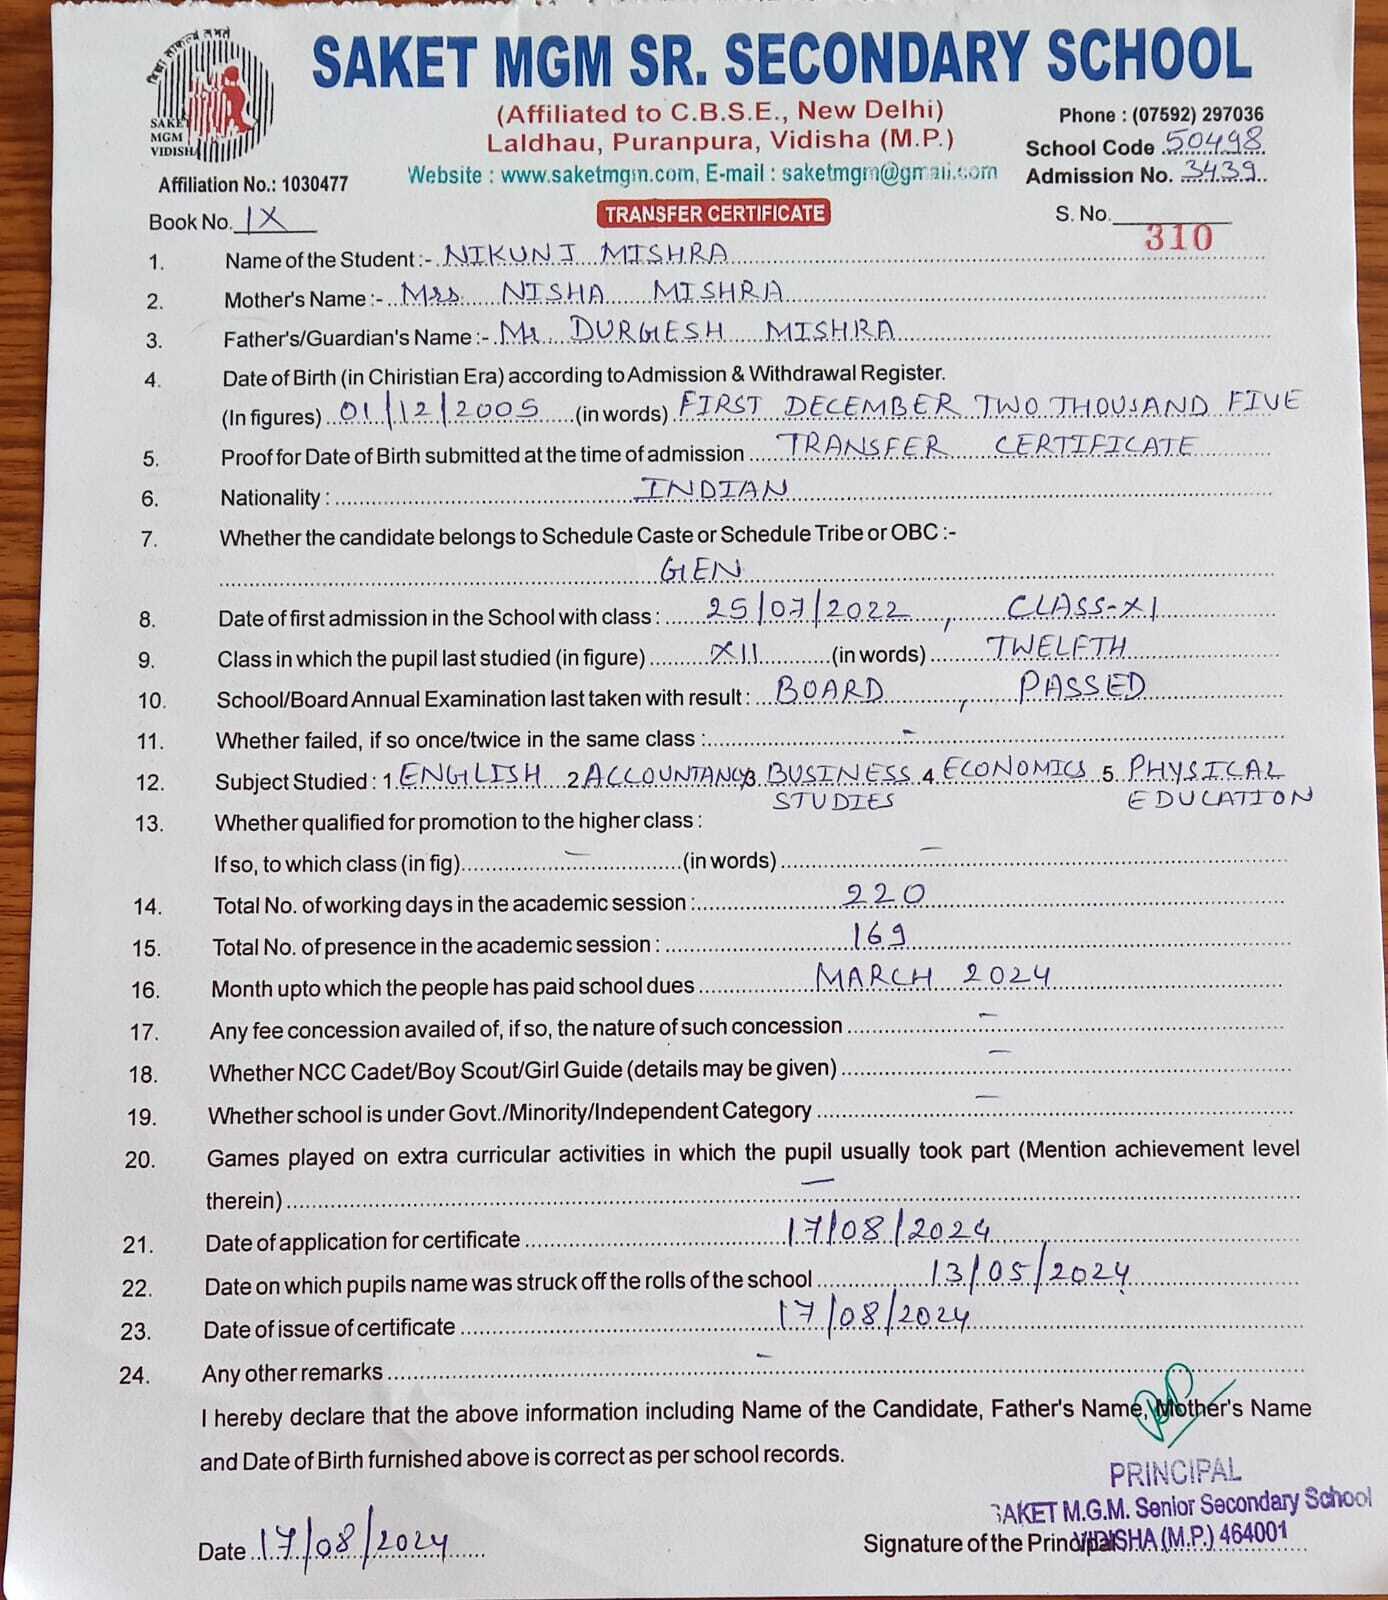 विद्या साफल्य लभते
SAKET
MGM
VIDISHA
SAKET MGM SR. SECONDARY SCHOOL
(Affiliated to C.B.S.E., New Delhi)
Laldhau, Puranpura, Vidisha (M.P.)
Website : www.saketmgm.com, E-mail : saketmgm@gmail.com
Phone : (07592) 297036
School Code 50498
Admission No. 3439
Affiliation No.: 1030477
Book No. IX
TRANSFER CERTIFICATE
S. No. 310
1. Name of the Student :- NIKUNJ MISHRA
2. Mother's Name :- Mrs. NISHA MISHRA
3. Father's/Guardian's Name :- Mr. DURGESH MISHRA
4. Date of Birth (in Chiristian Era) according to Admission & Withdrawal Register.
(In figures) 01/12/2005 (in words) FIRST DECEMBER TWO THOUSAND FIVE
5. Proof for Date of Birth submitted at the time of admission TRANSFER CERTIFICATE
6. Nationality : INDIAN
7. Whether the candidate belongs to Schedule Caste or Schedule Tribe or OBC :-
GEN
8. Date of first admission in the School with class : 25/07/2022, CLASS-XI
9. Class in which the pupil last studied (in figure) XII (in words) TWELFTH
10. School/Board Annual Examination last taken with result : BOARD, PASSED
11. Whether failed, if so once/twice in the same class : -
12. Subject Studied : 1. ENGLISH 2. ACCOUNTANCY 3. BUSINESS STUDIES 4. ECONOMICS 5. PHYSICAL EDUCATION
13. Whether qualified for promotion to the higher class :
If so, to which class (in fig) - (in words) -
14. Total No. of working days in the academic session : 220
15. Total No. of presence in the academic session : 169
16. Month upto which the people has paid school dues MARCH 2024
17. Any fee concession availed of, if so, the nature of such concession -
18. Whether NCC Cadet/Boy Scout/Girl Guide (details may be given) -
19. Whether school is under Govt./Minority/Independent Category -
20. Games played on extra curricular activities in which the pupil usually took part (Mention achievement level
therein) -
21. Date of application for certificate 17/08/2024
22. Date on which pupils name was struck off the rolls of the school 13/05/2024
23. Date of issue of certificate 17/08/2024
24. Any other remarks -
I hereby declare that the above information including Name of the Candidate, Father's Name, Mother's Name
and Date of Birth furnished above is correct as per school records.
PRINCIPAL
SAKET M.G.M. Senior Secondary School
VIDISHA (M.P.) 464001
Date 17/08/2024
Signature of the Principal